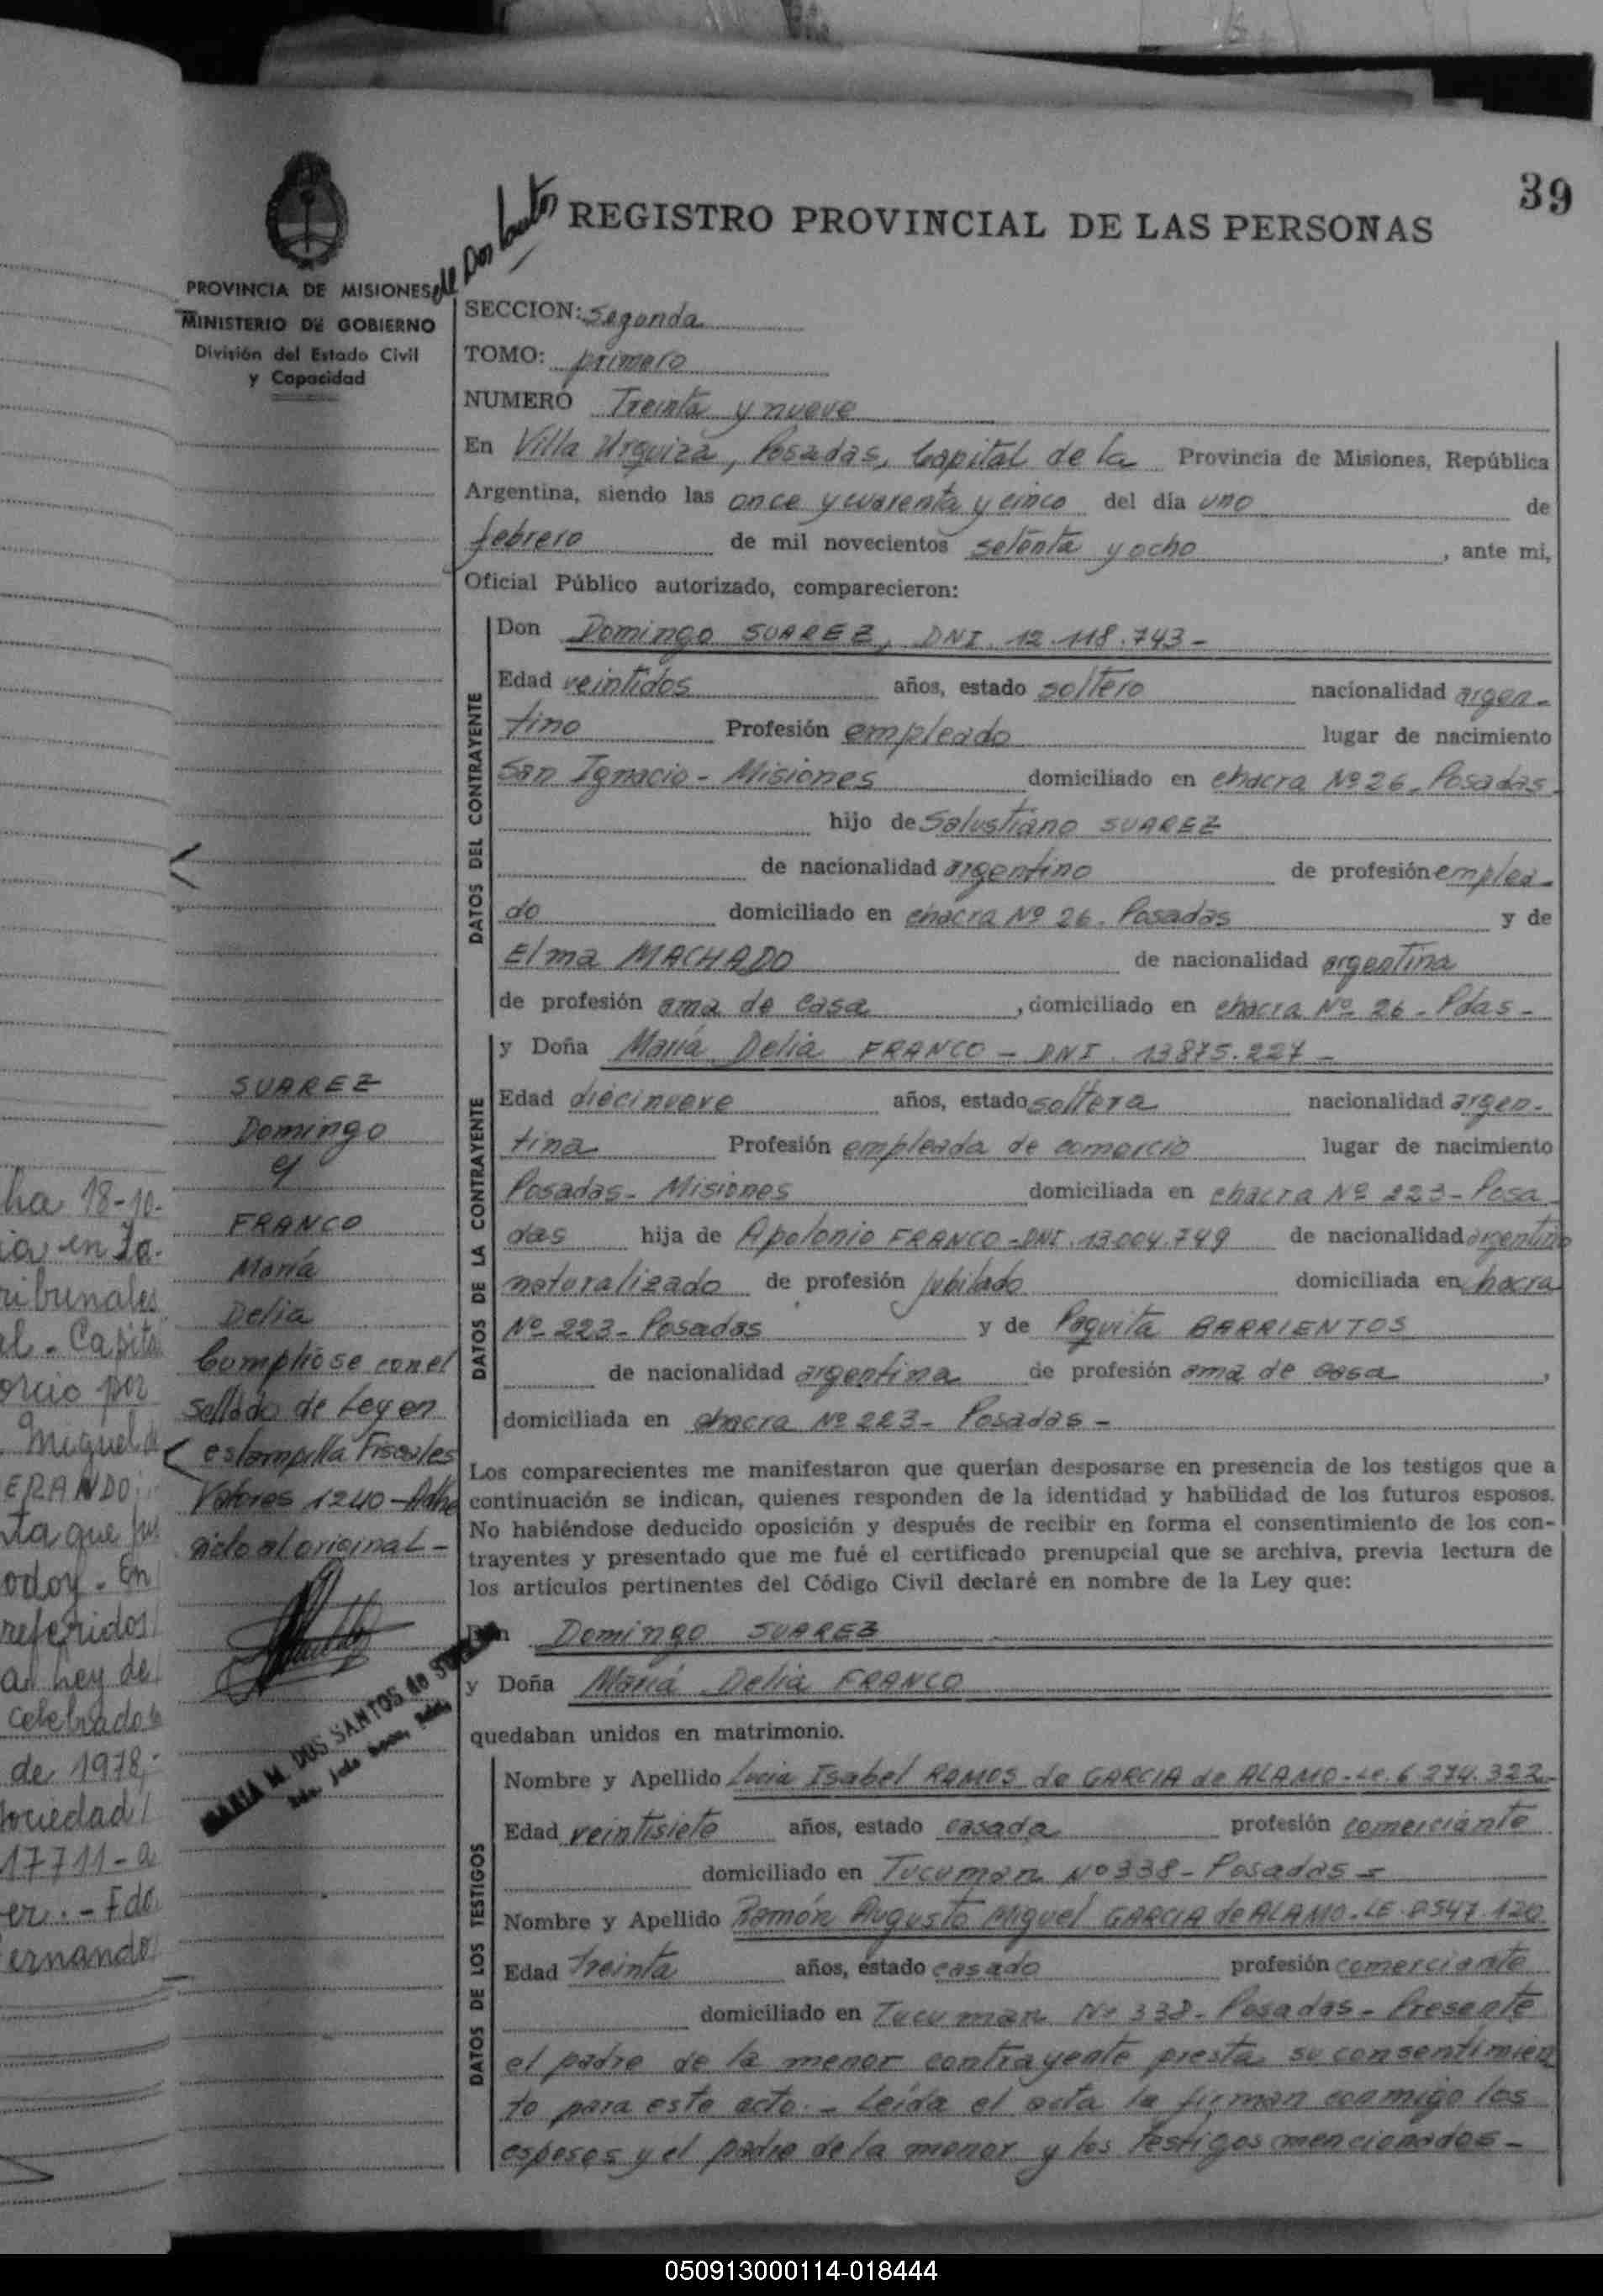 39
REGISTRO PROVINCIAL DE LAS PERSONAS
PROVINCIA DE MISIONES
MINISTERIO DE GOBIERNO
División del Estado Civil
y Capacidad
SECCION: Segunda
TOMO: primero
NUMERO Treinta y nueve
En Villa Urquiza, Posadas, Capital de la Provincia de Misiones, República
Argentina, siendo las once y cuarenta y cinco del día uno de
febrero de mil novecientos setenta y ocho, ante mi,
Oficial Público autorizado, comparecieron:
DATOS DEL CONTRAYENTE
Don Domingo SUAREZ, DNI. 12.118.743-
Edad veintidos años, estado soltero nacionalidad argen-
tino Profesión empleado lugar de nacimiento
San Ignacio - Misiones domiciliado en chacra Nº 26. Posadas
hijo de Salustiano SUAREZ
de nacionalidad argentino de profesión emplea-
do domiciliado en chacra Nº 26. Posadas y de
Elma MACHADO de nacionalidad argentina
de profesión ama de casa, domiciliado en chacra Nº 26 - Pdas-
DATOS DE LA CONTRAYENTE
y Doña María Delia FRANCO - DNI. 13875.227-
Edad diecinueve años, estado soltera nacionalidad argen-
tina Profesión empleada de comercio lugar de nacimiento
Posadas - Misiones domiciliada en chacra Nº 223 - Posa
das hija de Apolonio FRANCO - DNI. 13.004.749 de nacionalidad argentino
naturalizado de profesión jubilado domiciliada en chacra
Nº 223 - Posadas y de Paquita BARRIENTOS
de nacionalidad argentina de profesión ama de casa,
domiciliada en chacra Nº 223 - Posadas -
SUAREZ
Domingo
y
FRANCO
María
Delia
Cumpliose con el
sellado de Ley en
estampilla Fiscales
Valores 1240 - Adhe
rido al original -
Los comparecientes me manifestaron que querían desposarse en presencia de los testigos que a
continuación se indican, quienes responden de la identidad y habilidad de los futuros esposos.
No habiéndose deducido oposición y después de recibir en forma el consentimiento de los con-
trayentes y presentado que me fué el certificado prenupcial que se archiva, previa lectura de
los artículos pertinentes del Código Civil declaré en nombre de la Ley que:
Don Domingo SUAREZ
y Doña María Delia FRANCO
quedaban unidos en matrimonio.
MARIA M. DOS SANTOS de
DATOS DE LOS TESTIGOS
Nombre y Apellido Lucia Isabel RAMOS de GARCIA de ALAMO - LC. 6.274.322-
Edad veintisiete años, estado casada profesión comerciante
domiciliado en Tucuman Nº 338 - Posadas -
Nombre y Apellido Ramón Augusto Miguel GARCIA de ALAMO - LE. 8547.120
Edad treinta años, estado casado profesión comerciante
domiciliado en Tucuman Nº 338 - Posadas - Presente
el padre de la menor contrayente presta su consentimien
to para este acto. - Leída el acta la firman conmigo los
esposos y el padre de la menor y los testigos mencionados -
ha 18-10-
ia en La
ribunales
al - Capital
orcio por
Miguel
ERANDO
ta que
odoy. En
referidos
Ley de
celebrado
de 1978,-
ociedad
17711-a
er. - Fdo
ernando
050913000114-018444